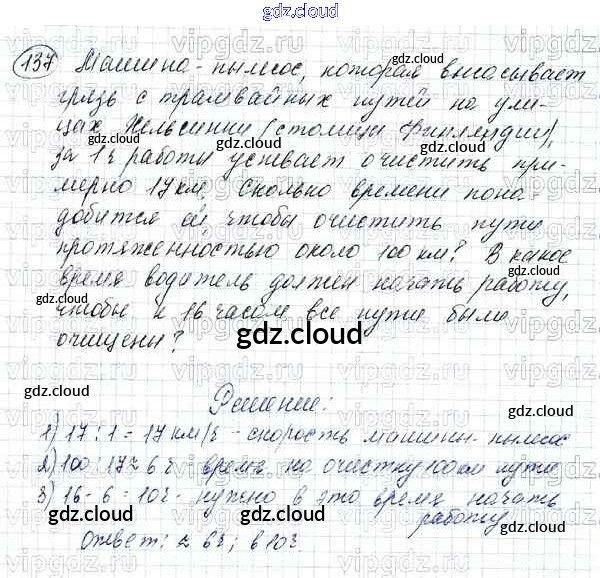 137 Машина-пылесос, которая высасывает
грязь с трамвайных путей на ули-
цах Хельсинки (столицы Финляндии),
за 1 ч работы успевает очистить при-
мерно 17 км. Сколько времени пона-
добится ей, чтобы очистить пути
протяженностью около 100 км? В какое
время водитель должен начать работу,
чтобы к 16 часам все пути были
очищены?
Решение:
1) 17 : 1 = 17 км/ч - скорость машины-пылесос
2) 100 : 17 ≈ 6 ч - время на очистку 100 км пути
3) 16 - 6 = 10 ч - нужно в это время начать
работу
Ответ: ≈ 6 ч; в 10 ч.
gdz.cloud
vipgdz.ru